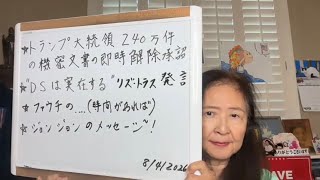 ★トランプ大統領 240万件
の機密文書の即時解除承認
★"DSは実在する" リズ・トラス 発言
★ファウチの...(時間があれば)
★ジョンジョンのメッセージ!
8/4/2026